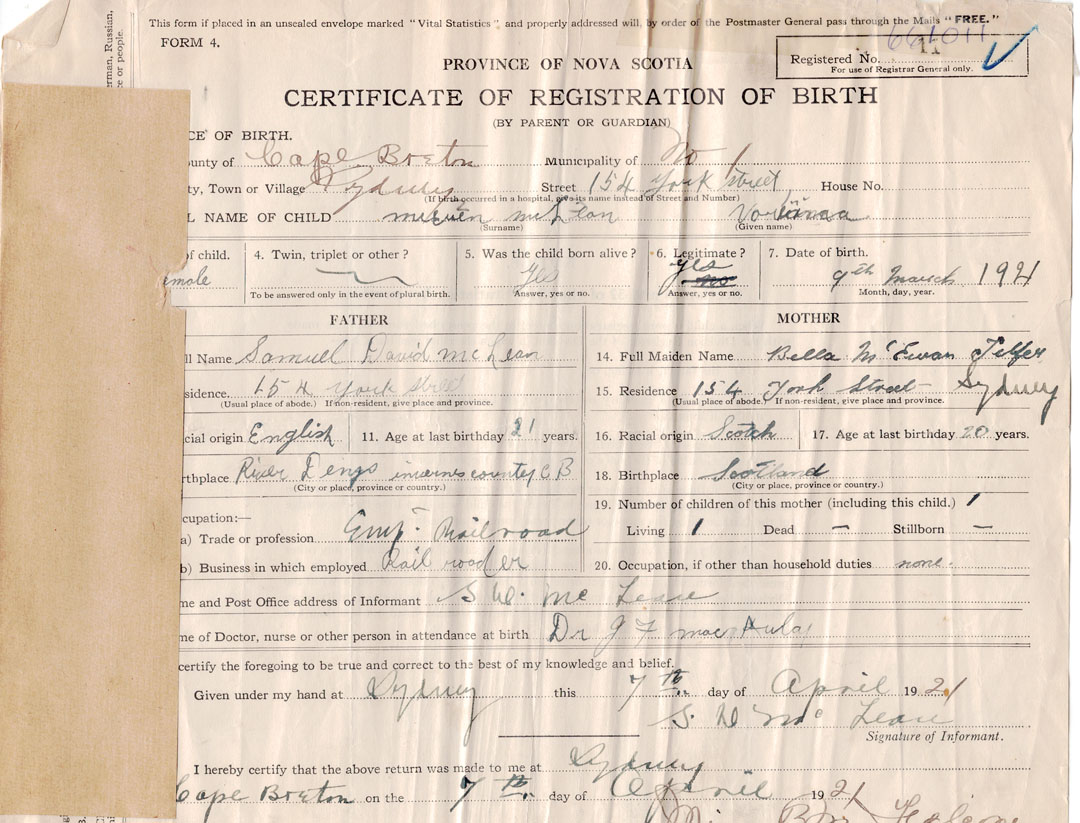 This form if placed in an unsealed envelope marked "Vital Statistics" and properly addressed will, by order of the Postmaster General pass through the Mails "FREE."
FORM 4.
661011
Registered No. 11
For use of Registrar General only.
PROVINCE OF NOVA SCOTIA
CERTIFICATE OF REGISTRATION OF BIRTH
(BY PARENT OR GUARDIAN)
erman, Russian,
ce or people.
CE OF BIRTH.
ounty of Cape Breton Municipality of No 1
ty, Town or Village Sydney Street 154 York Street House No.
(If birth occurred in a hospital, give its name instead of Street and Number)
L NAME OF CHILD McLean
(Surname) (Given name)
of child. 4. Twin, triplet or other? 5. Was the child born alive? 6. Legitimate? 7. Date of birth.
emale Yes yes no 9th March 1921
To be answered only in the event of plural birth. Answer, yes or no. Answer, yes or no. Month, day, year.
FATHER MOTHER
ll Name Samuel David McLean 14. Full Maiden Name Bella McEwan Telfer
sidence. 154 York Street 15. Residence 154 York Street Sydney
(Usual place of abode.) If non-resident, give place and province. (Usual place of abode.) If non-resident, give place and province.
cial origin English 11. Age at last birthday 21 years. 16. Racial origin Scotch 17. Age at last birthday 20 years.
rthplace River Denys inverness county C B 18. Birthplace Scotland
(City or place, province or country.) (City or place, province or country.)
19. Number of children of this mother (including this child.) 1
cupation:— Living 1 Dead — Stillborn —
a) Trade or profession Emp. Railroad
b) Business in which employed Railroader 20. Occupation, if other than household duties none.
me and Post Office address of Informant S D. Mc Lean
me of Doctor, nurse or other person in attendance at birth Dr J F
certify the foregoing to be true and correct to the best of my knowledge and belief.
Given under my hand at Sydney this 7th day of April 1921
S. D Mc Lean
Signature of Informant.
I hereby certify that the above return was made to me at Sydney
Cape Breton on the 7th. day of April 1921